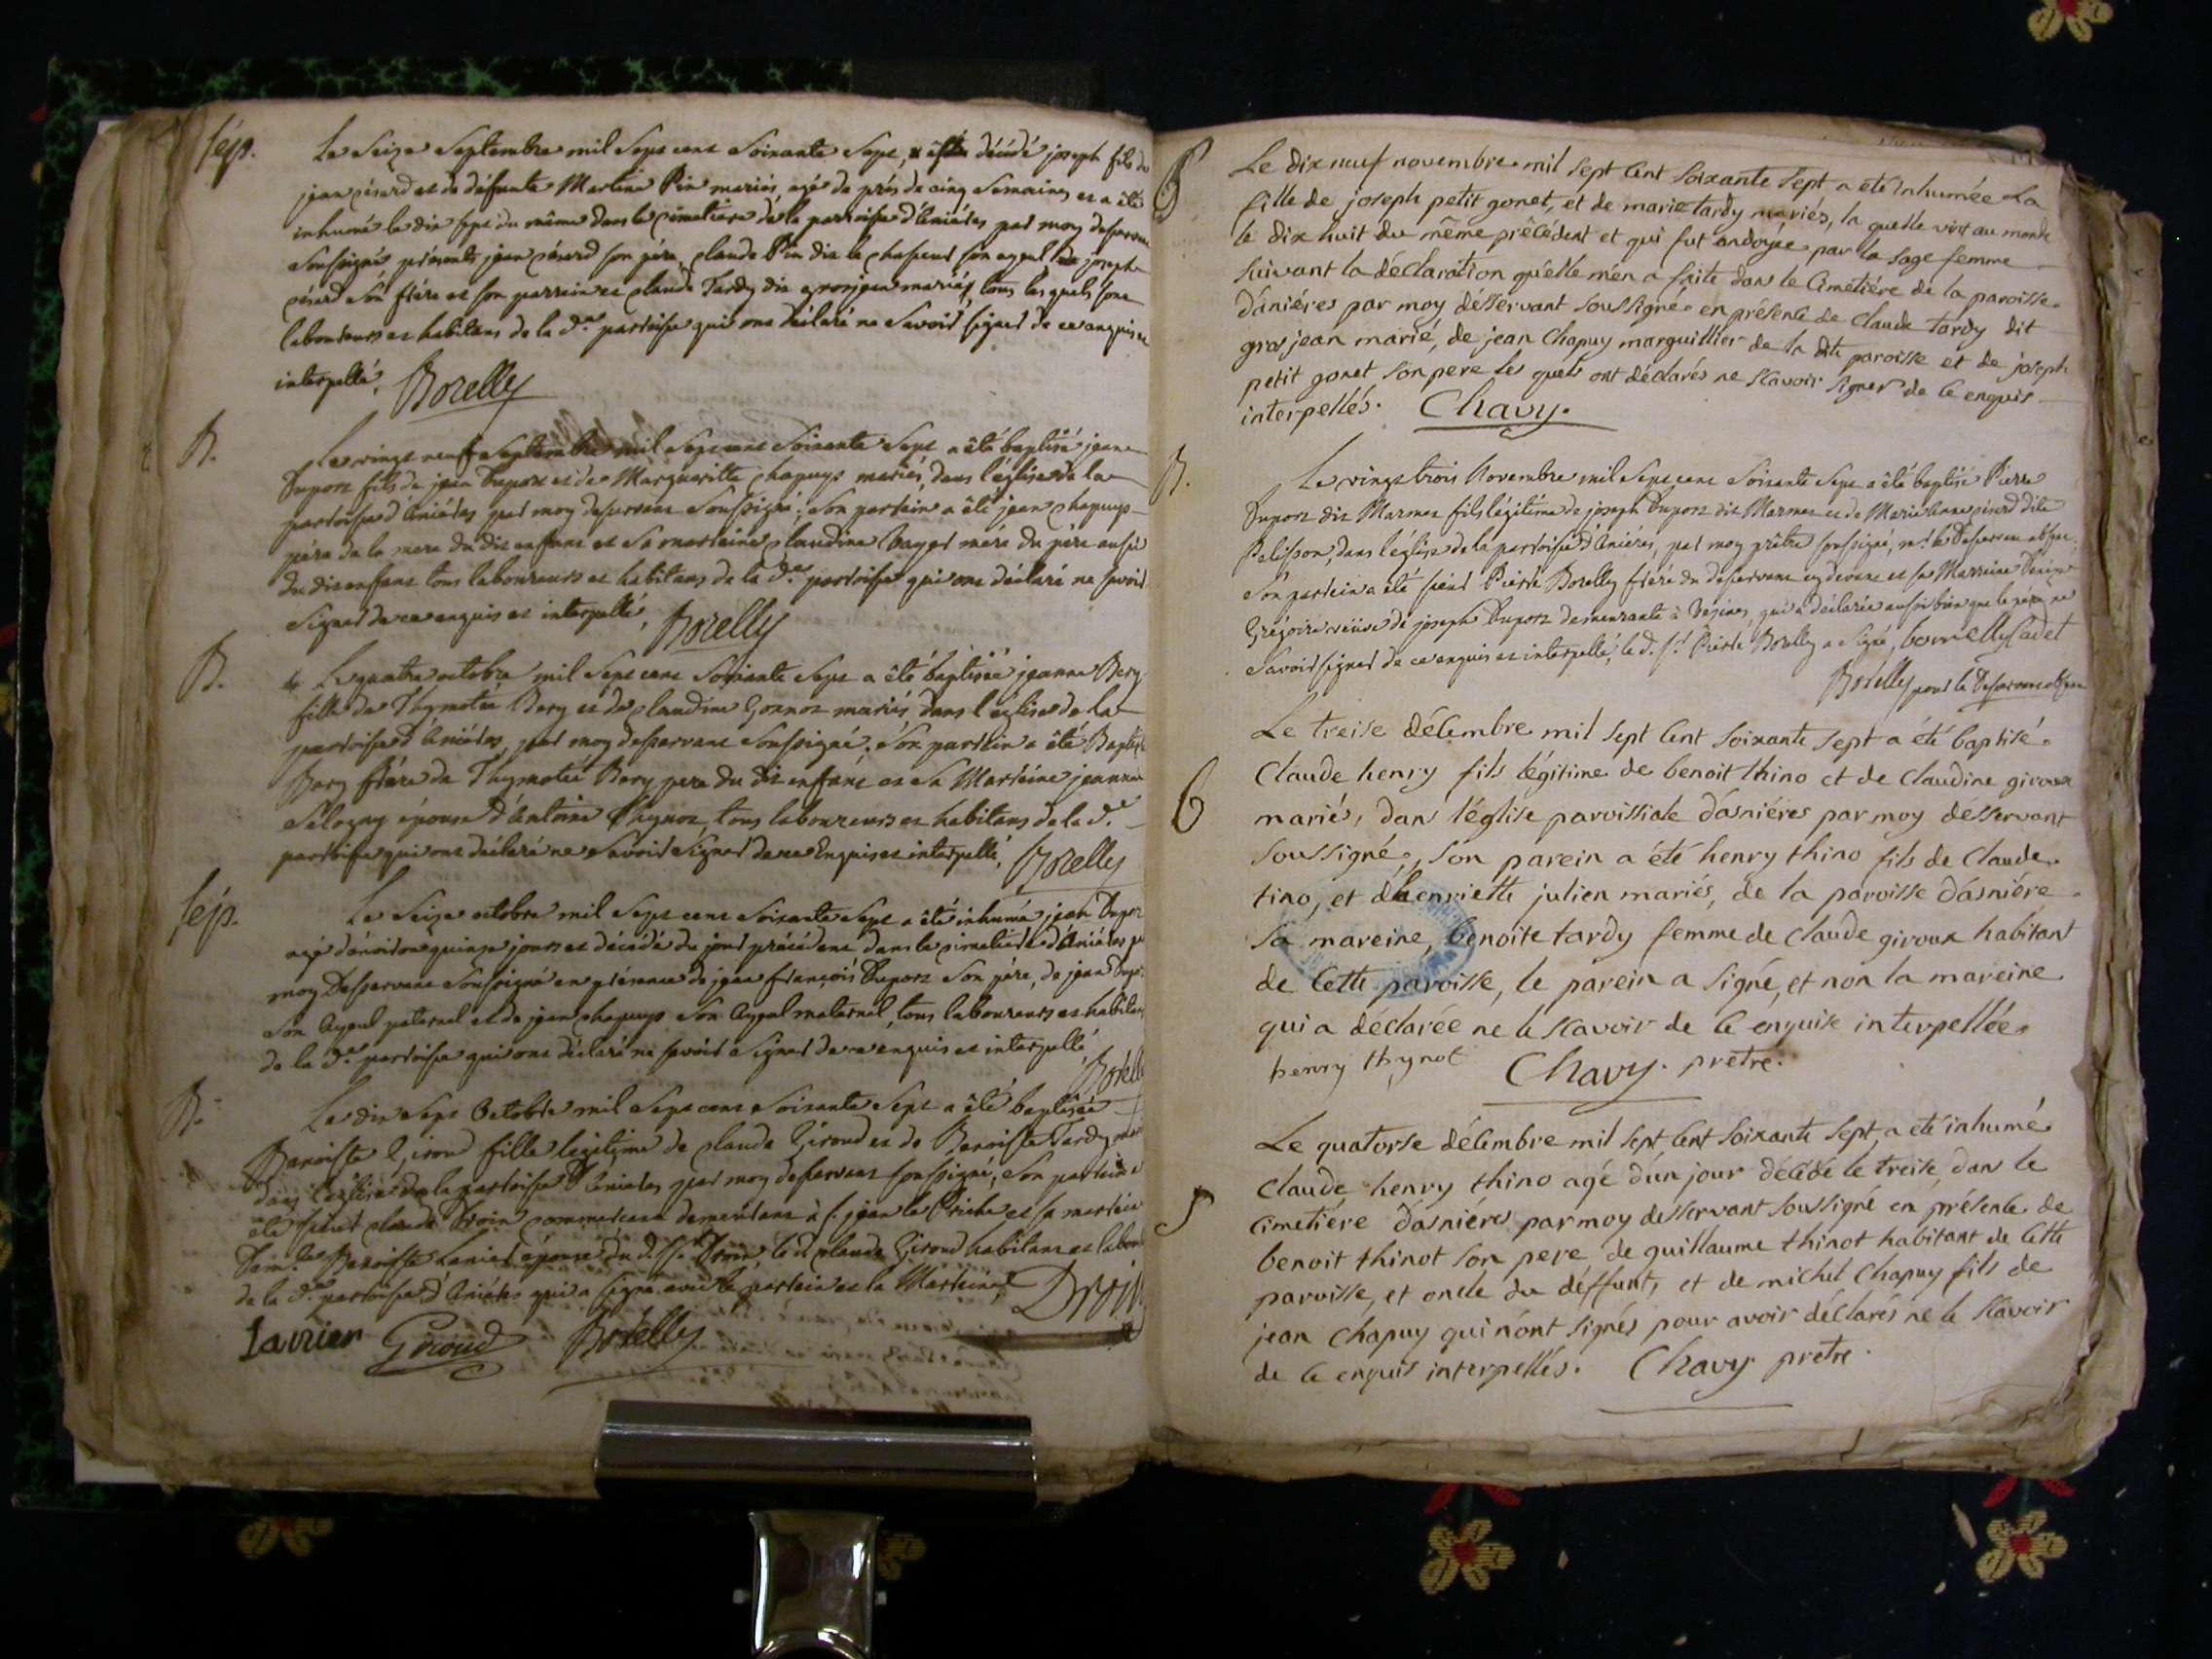 sép.
Le Seize Septembre mil Sept cent Soixante Sept, est décédé joseph fils de
jean pisard et de défunte Martine Pin mariés, agé de prés de cinq Semaines et a êté
inhumé le dix sept du même dans le cimetiere de la parroisse d'Aniéres par moy desservant
Soussigné présents jean pisard son pére, claude Pin dit le chasseur son ayeul joseph
pisard Són frére et son parrein et claude Tardy dit grosjean mariés, tous lesquels sont
laboureurs et habitans de la d.e parroisse qui ont déclaré ne Savoir signer de ce enquis et
interpellé. Borelly
B.
Le vingt neuf Septembre mil Sept cent Soixante Sept a êté baptisé jean
Dupont fils de jean Dupont et de Margueritte chapuys mariés, dans l'église de la
parroisse d'Aniéres par moy desservant Soussigné; Son parrein a êté jean chapuys
pére de la mere du dit enfant et Sa marreine claudine bayet mére du pére aussi
du dit enfant tous laboureurs et habitans de la d.e parroisse qui ont déclaré ne savoir
signer de ce enquis et interpellé, Borelly
B.
Le quatre octobre mil Sept cent Soixante Sept a êté baptisée jeanne Bery
fille de Thymotée Bery et de claudine Gonnot mariés, dans l'église de la
parroisse d'Aniéres, par moy desservant Soussigné. Son parrein a êté Baptiste
Bery frére de Thymotée Bery pere du dit enfant et Sa Marreine jeanne
Sélogny épouse d'Antoine Thynot, tous laboureurs et habitans de la d.e
parroisse qui ont déclaré ne Savoir signer de ce Enquis et interpellé, Borelly
sép.
Le Seize octobre mil Sept cent Soixante Sept a êté inhumé jean Dupont
agé d'environ quinze jours et décédé du jour précédent dans le cimetiére d'Aniéres par
moy Desservant Soussigné en présence de jean françois Dupont Son pére, de jean Dupont
Són Ayeul paternel et de jean chapuys Son Ayeul maternel, tous laboureurs et habitans
de la d.e parroisse qui ont déclaré ne savoir Signer de ce enquis et interpellé,
Borelly
B.
Le dix Sept Octobre mil Sept cent Soixante Sept a êté baptisée
Benoiste Giroud fille legitime de claude Giroud et de Benoiste Tardy mariés
dans l'église de la parroisse d'Aniéres par moy desservant soussigné; Son parrein a
êté sieur claude Droin commercant demeurant à s. jean le Priche et sa marreine
Dam.le Benoiste épouse du d. S.r Droin, le d. claude Giroud habitant et laboureur
de la d.e parroisse d'Aniéres qui a signé avec le parrein et la Marreine, Droin
Lavrier Giroud Borelly
S
Le dix neuf novembre mil sept cent soixante sept a eté inhumée La
fille de joseph petit gonet, et de marie tardy mariés, la quelle vint au monde
le dix huit du même précédent et qui fut ondoyée par la sage femme
suivant la déclaration quélle men a faite dans le Cimetiére de la paroisse
dániéres par moy désservant soussigné en présence de Claude tardy dit
gros jean marié, de jean Chapuy marguillier de la dite paroisse et de joseph
petit gonet son pere les quels ont déclarés ne scavoir signer de ce enquis
interpellés. Chavy.
B.
Le vingt trois Novembre mil Sept cent Soixante Sept a êté baptisé Pierre
Dupont dit Marmet fils légitime de joseph Dupont dit Marmet et de Marie Anne pisard dite
Pelisson, dans l'église de la parroisse d'Aniéres, par moy prêtre soussigné, m.r le Desservant absent;
Son parrein a êté sieur Pierre Borelly frére du desservant cy devant et sa Marreine Denize
Grégoire veüve de joseph Dupont demeurante à Vésines, qui a déclarée aussi bien que le pere ne
Savoir signer de ce enquis et interpellé, le d. s.r Pierre Borelly a Signé, borrelly Cadet
Borelly pour le Desservant absent
6
Le treise décembre mil sept cent soixante sept a été baptisé
Claude henry fils légitime de benoit thino et de Claudine giroux
mariés, dans léglise paroissiale dásniéres par moy desservant
soussigné, són parein a été henry thino fils de Claude
tino, et dhenriette julien mariés, de la paroisse dásniére
sa mareine, benoite tardy femme de Claude giroux habitant
de cette paroisse, le parein a signé, et non la mareine
qui a déclarée ne le scavoir de ce enquise interpellée
henry thynot Chavy. pretre.
S
Le quatorse décembre mil sept cent soixante sept, a eté inhumé
Claude henry thino agé dún jour décédé le treise, dans le
cimetiére dásniéres par moy desservant soussigné en présence de
benoit thinot son pere, de guillaume thinot habitant de cette
paroisse, et oncle du déffunt, et de michel Chapuy fils de
jean Chapuy qui n'ont signés pour avoir déclarés ne le scavoir
de ce enquis interpellés. Chavy pretre.